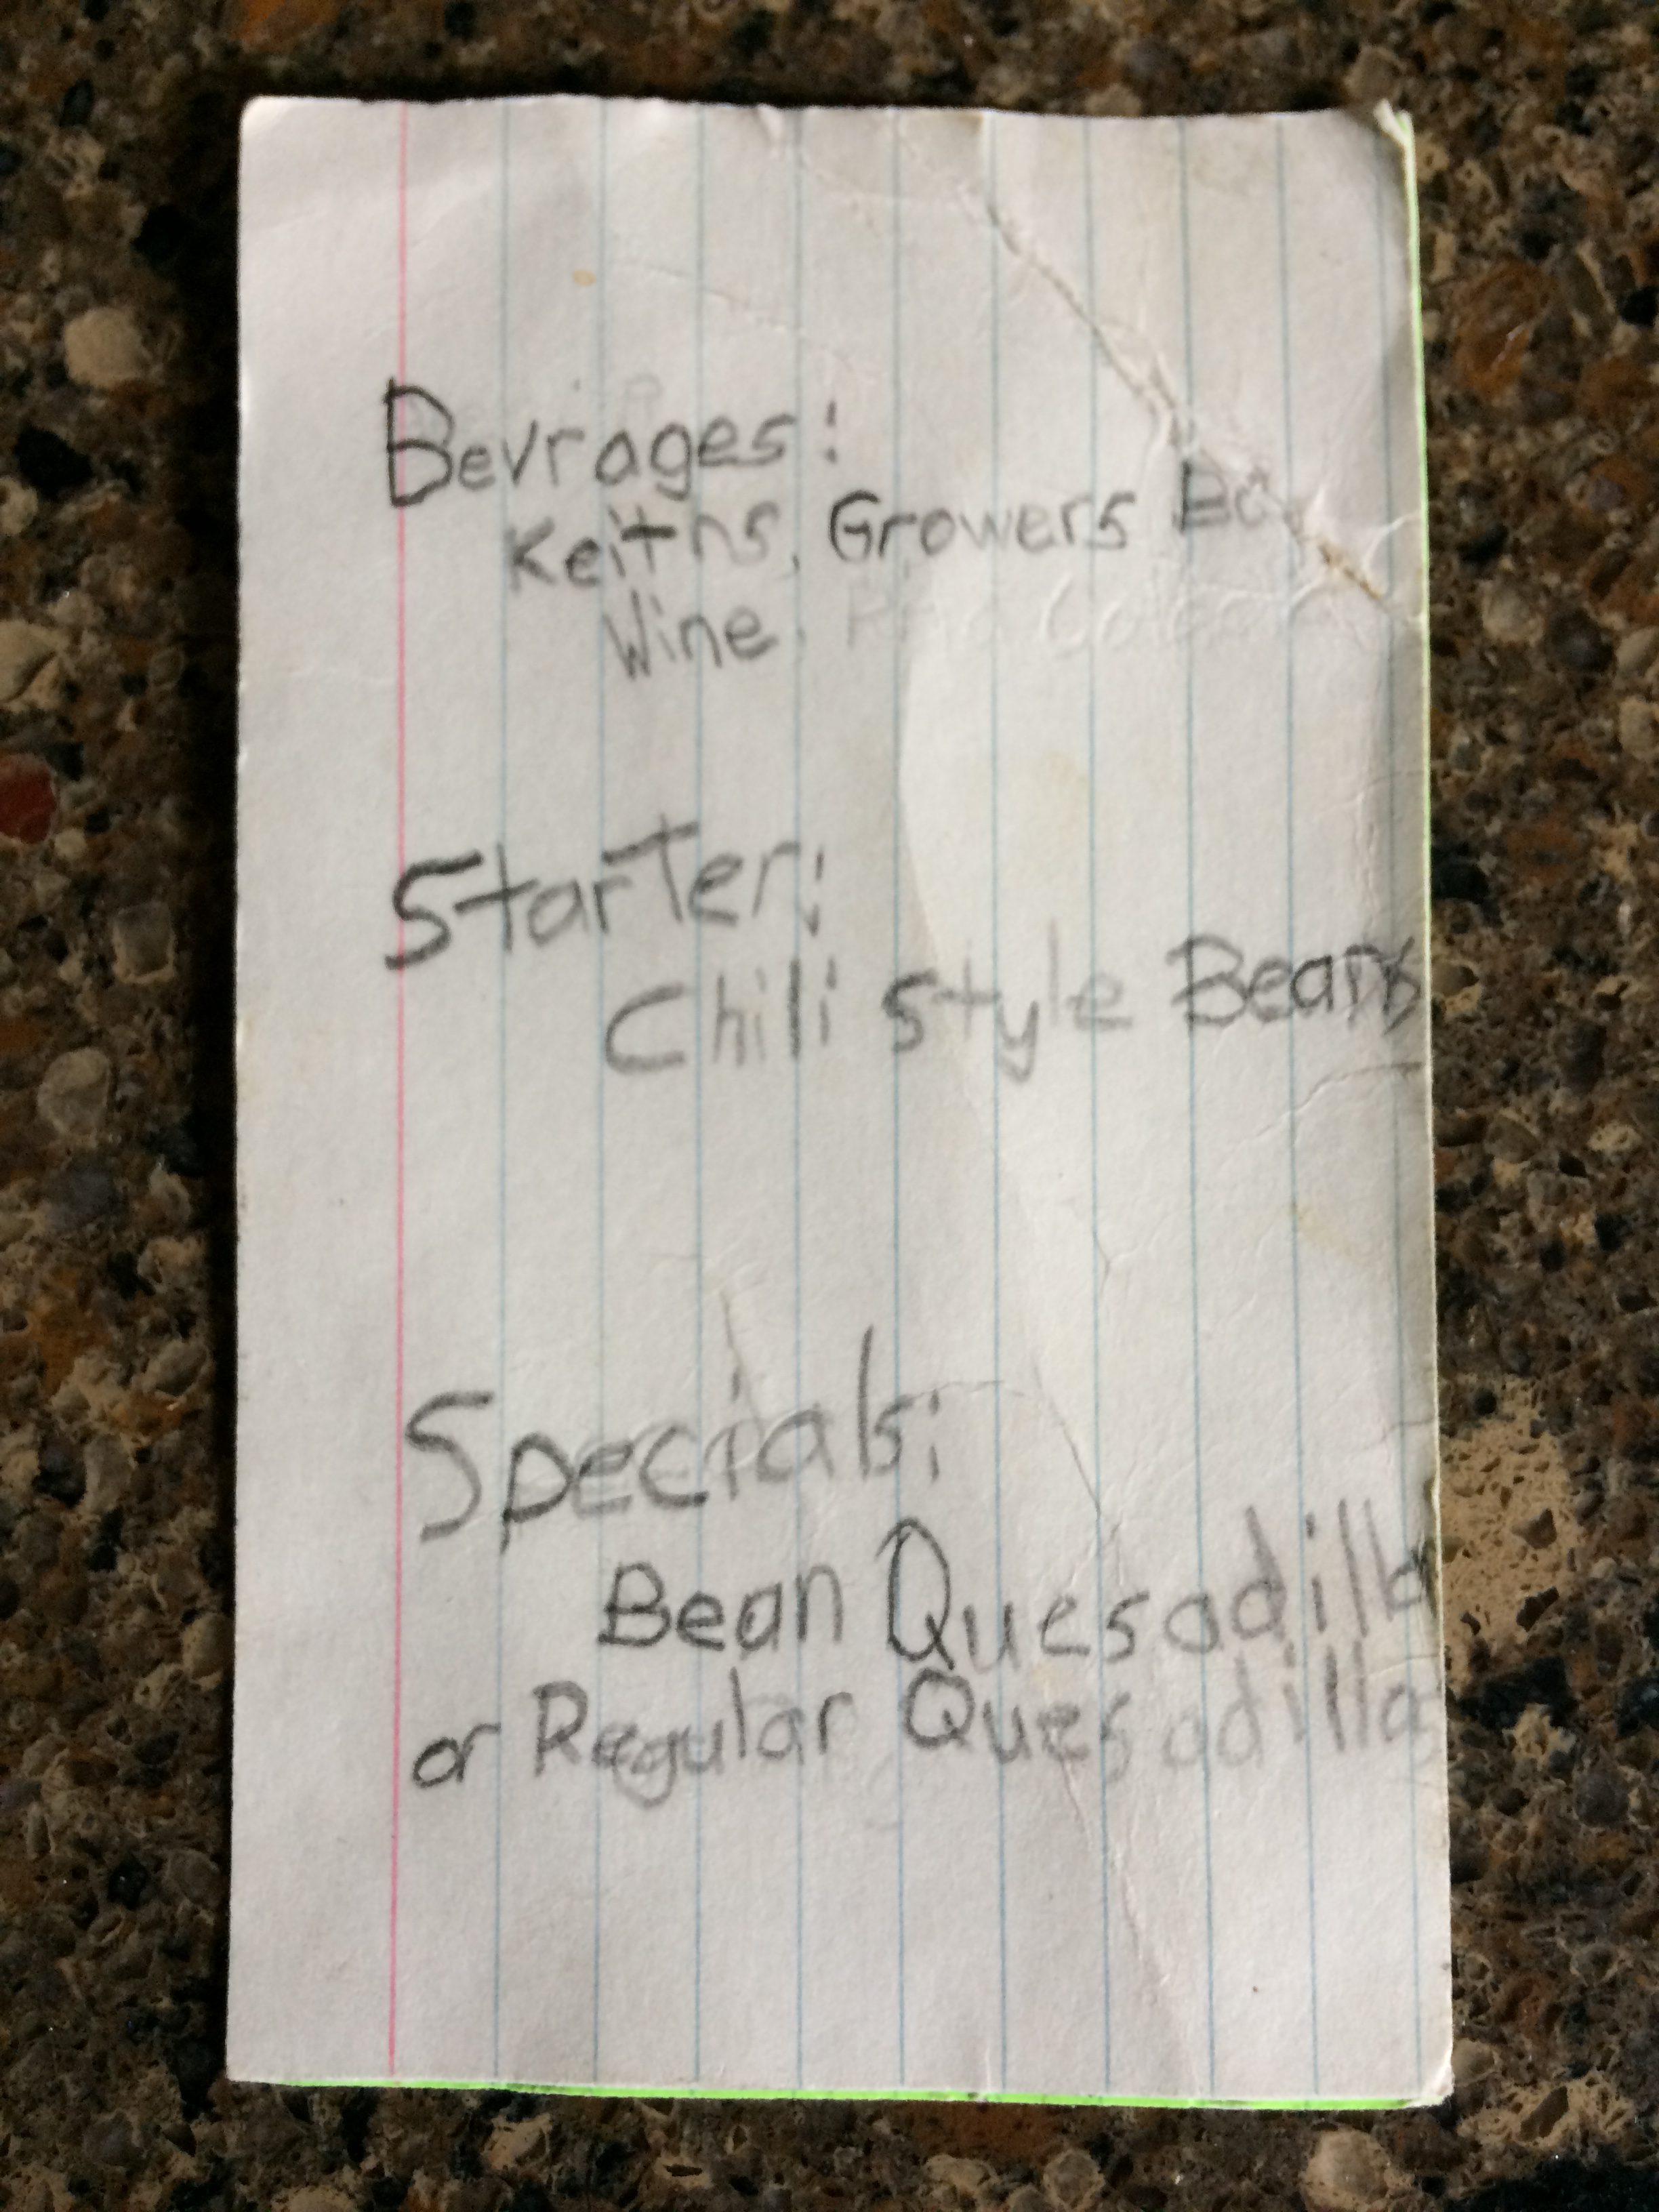 Bevrages:
Keiths, Growers
Wine
Starter:
Chili style Beans
Specials:
Bean Quesadilla
or Regular Quesadilla